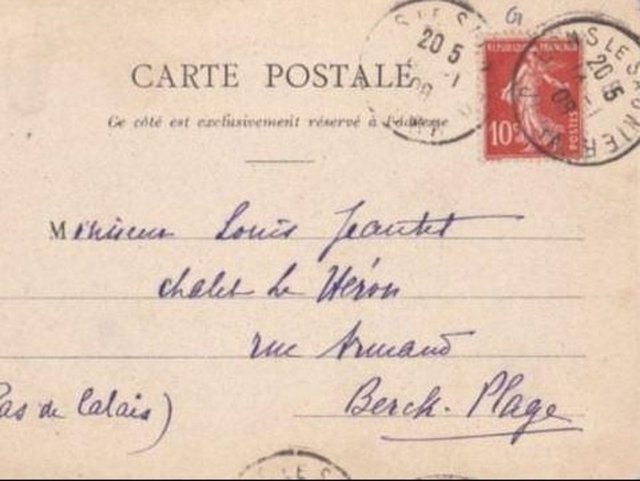 CARTE POSTALE
Ce côté est exclusivement réservé à l'adresse
REPUBLIQUE FRANÇAISE
10c
POSTES
20 5
20 5
09
Monsieur Louis Jeantet
chalet Le Héron
rue Armand
Berck-Plage
Pas de Calais)